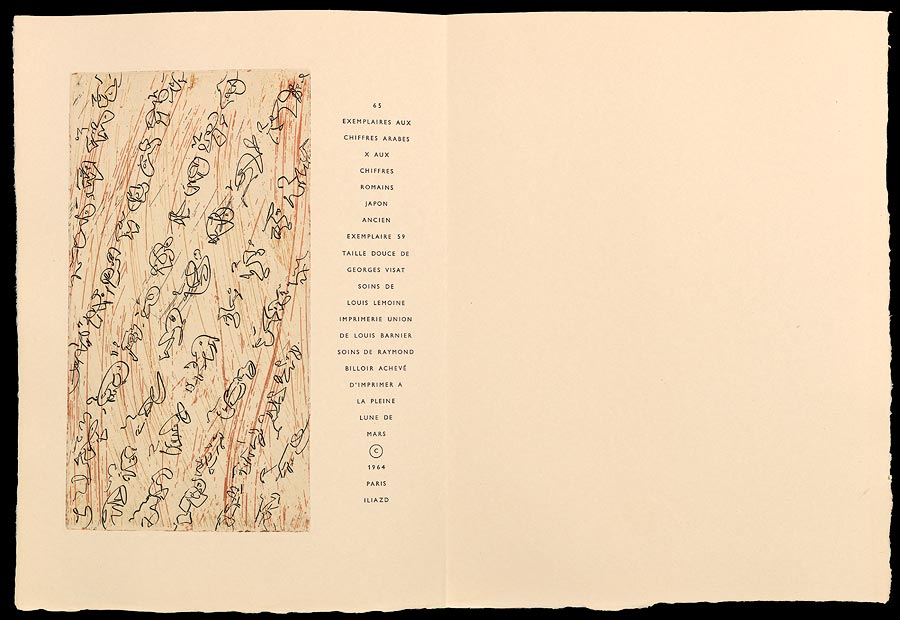 65
EXEMPLAIRES AUX
CHIFFRES ARABES
X AUX
CHIFFRES
ROMAINS
JAPON
ANCIEN
EXEMPLAIRE 59
TAILLE DOUCE DE
GEORGES VISAT
SOINS DE
LOUIS LEMOINE
IMPRIMERIE UNION
DE LOUIS BARNIER
SOINS DE RAYMOND
BILLOIR ACHEVÉ
D'IMPRIMER A
LA PLEINE
LUNE DE
MARS
©
1964
PARIS
ILIAZD